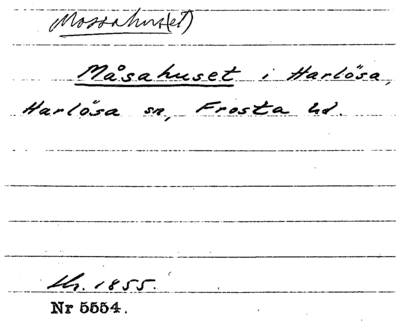 Mossahus(et)
Måsahuset i Harlösa,
Harlösa sn, Frosta hd.
1855.
Nr 5554.